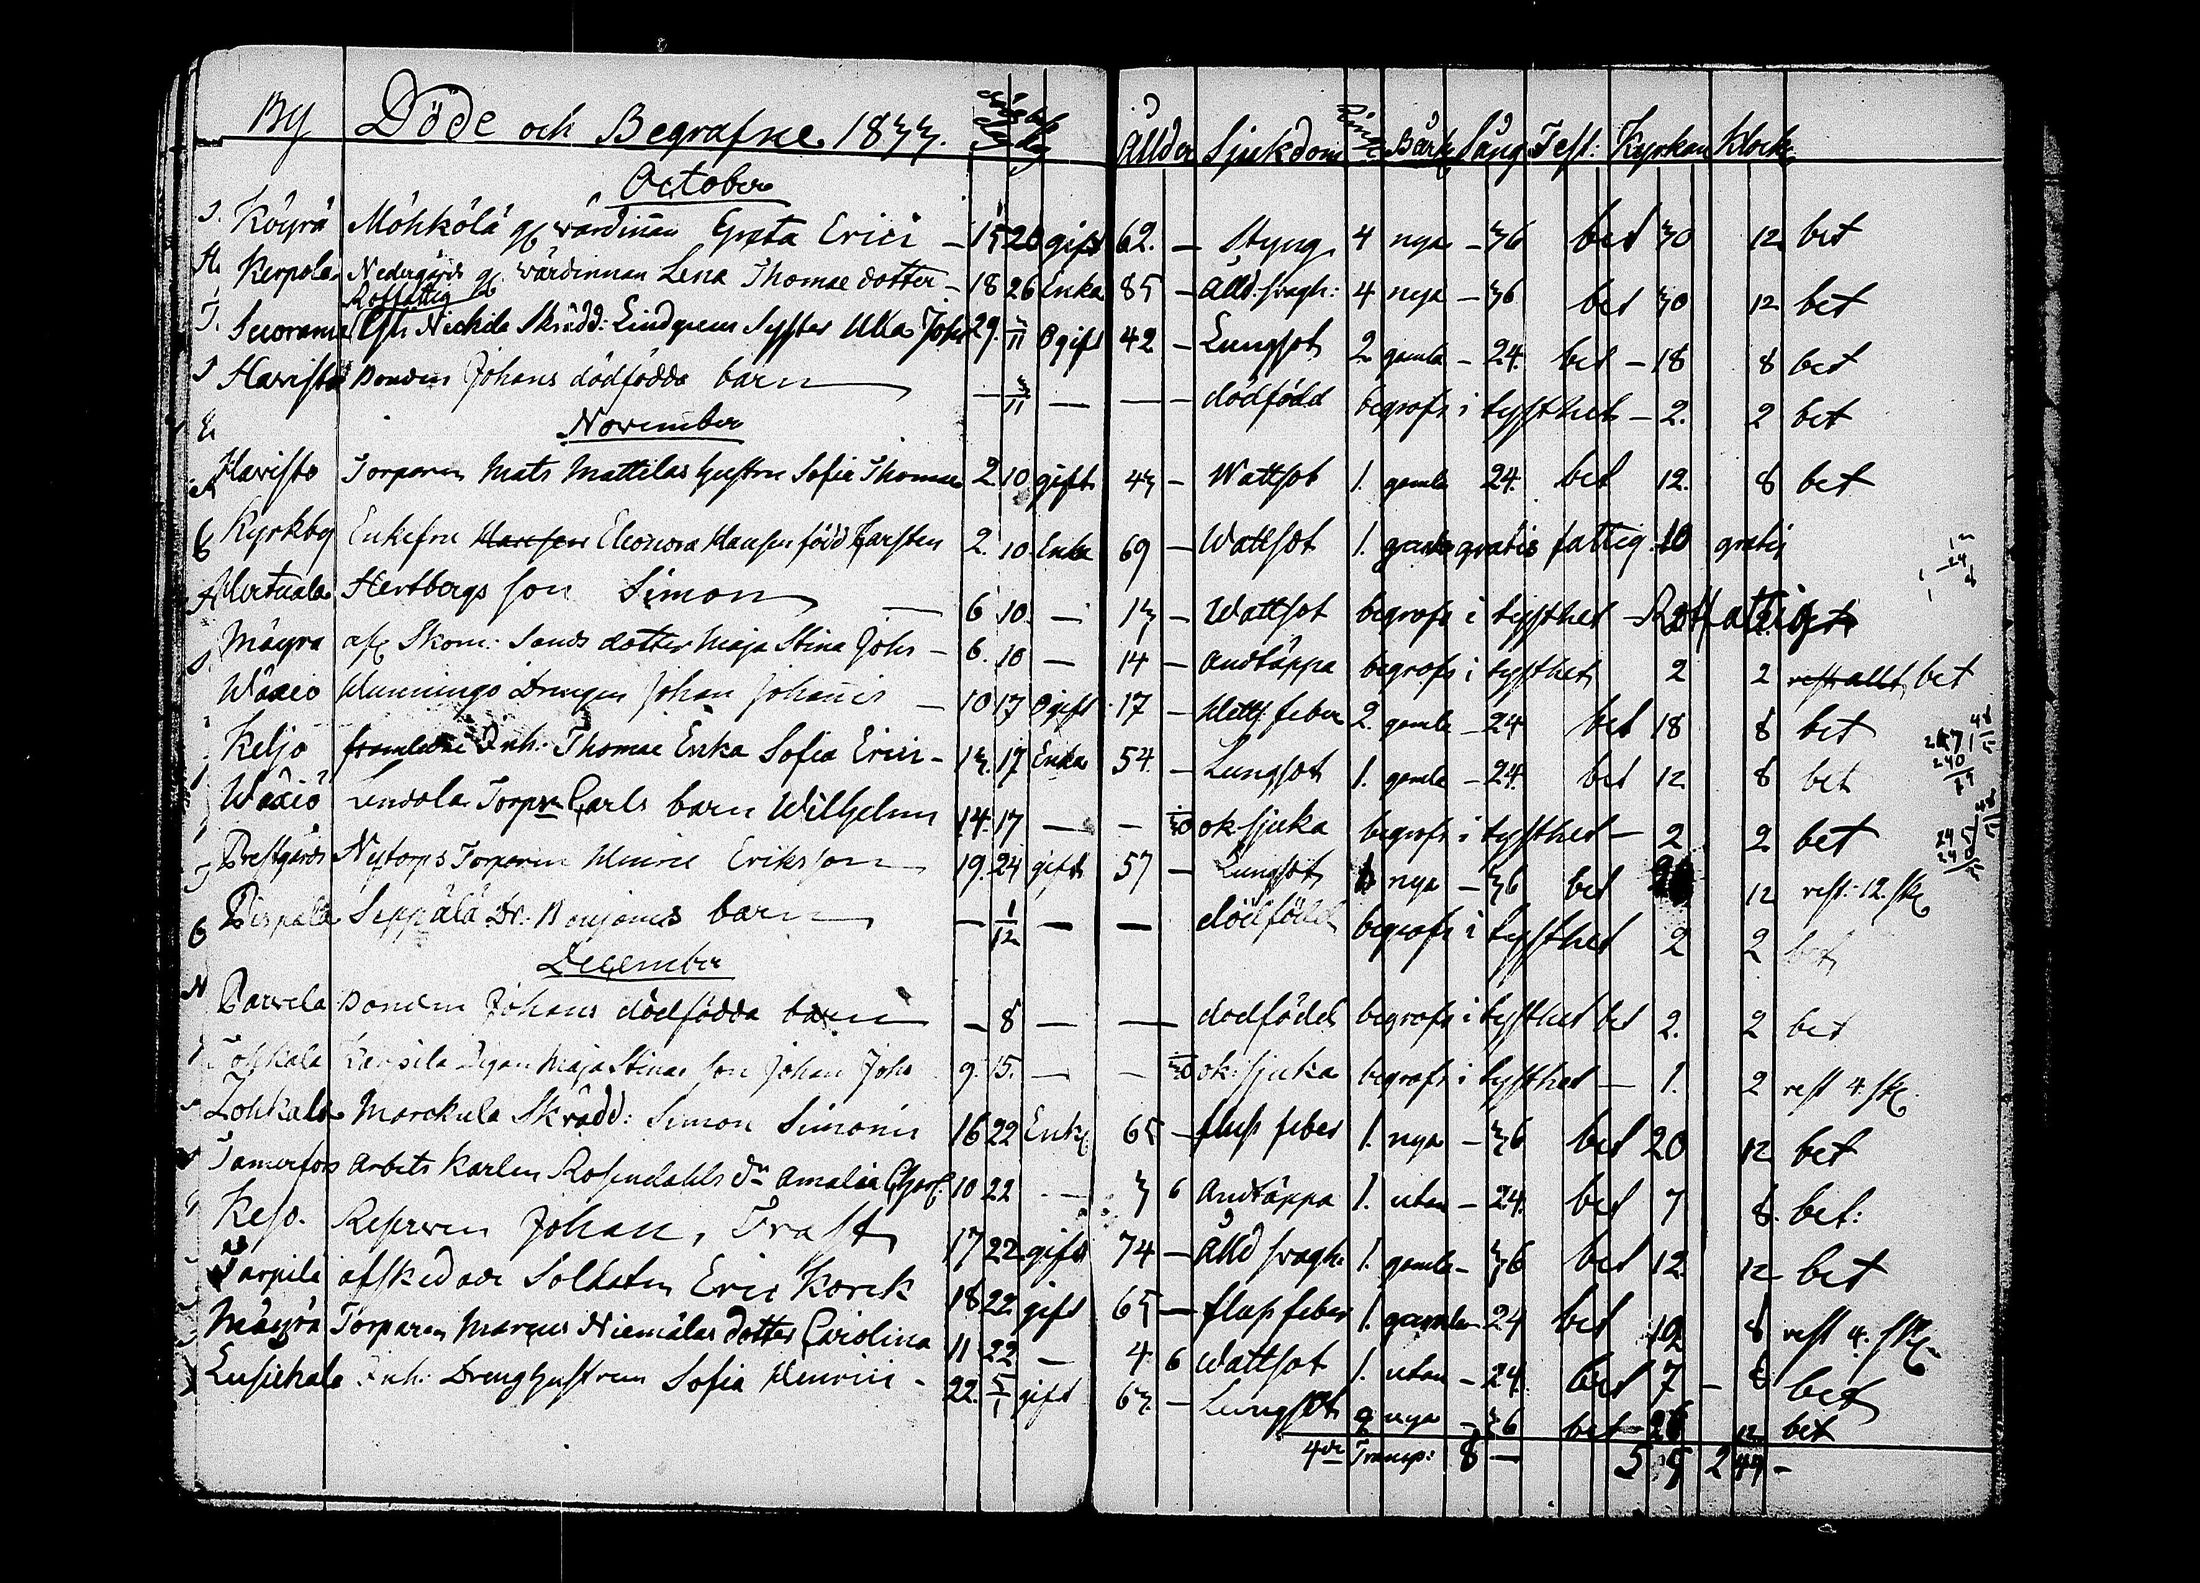 By Döde och Begrafne 1833. Ålder Sjukdom Bårk Sång Test: Kyrkan Klock
October
Köyrä Möhkölä wärdinnan Greta Erici — 15 20 gift 62. — Styng 4 nya — 36 bet 30 12 bet
Kerpola Nedergårds wärdinnan Lena Thomae dotter — 18 26 Enka 85 — Ålld: svagh: 4 nya — 36 bet 30 12 bet
Rotfattig
Suorama Nickila Skrädd: Lindgrens Syster Ulla Joh 29. 3/11 Ogift 42 — Lungsot 2 gamla — 24. bet — 18 8 bet
Havisto Bonden Johans dödfödda barn — 3/11 — — — dödfödd begrofs i tysthet — 2. 2 bet
November
Havisto Torparen Mats Mattilas hustru Sofia Thomae 2 10 gift 43 — Wattsot 1. gamla 24. bet 12. 8 bet
Kyrkby Enkefru Eleonora Hansen född Carsten 2. 10 Enka 69 — Wattsot 1. gamla gratis fattig 10 gratis
Hertbergs son Simon — 6 10. — 13 — Wattsot begrofs i tysthet — Rotfattig
Mäyrä Skom: Sands dotter Maja Stina Johs — 6. 10 — 14 — andtäppa begrofs i tysthet 2 2 rest allt, bet
Wääxiö Hunnings Drengen Johan Johanis — 10 17 Ogift 17 — feber 2. gamla — 24 bet 18 8 bet
Keljo framledne Inh: Thomae Enka Sofia Erici — 13. 17 Enka 54. — Lungsot 1. gamla — 24. bet 12 8 bet
Wääxiö Lendola Torp Carls barn Wilhelm 14. 17 — — ok: sjuka begrofs i tysthet — 2 2 bet
Prestgårds Nytorps Torparen Henric Eriksson 19. 24 gift 57 — Lungsot nya — 36 bet 12 rest: 12. sk
Pispala Seppälä Dr: Benjamis barn — 1/12 — — dödfödd begrofs i tysthet 2 2 bet
December
Parvela Bonden Johans dödfödda barn — 8 — — dödfödd begrofs i tysthet bet 2. 2 bet
Maja Stinas son Johan Johs 9. 15. — — ok: sjuka begrofs i tysthet — 1. 2 rest 4. sk.
Lohkala Marckula Skrädd: Simon Simonis 16 22 Enkl. 65 — fluss feber 1. nya — 36 bet 20 12 bet
Tamerfors Arbets karlen Rosendahls dr Amalia 10 22 — 3 6 Andtäppa 1. utan — 24. bet 7 8. bet:
Keso. Reserven Johan, Trast 17 22 gift 74 — Ålld svagh: 1. gamla — 36 bet 12. 12 bet
Tarpila afskedade Soldaten Eric Korck 18 22 gift 65 — fluss feber 1. gamla — 24 bet 12 8 rest 4. sk
Mäyrä Torparen Marcus Niemälas dotter Carolina 11 22 — 4 6 Wattsot 1. utan — 24. bet 7 — 8 bet
Liusiekala Inh: Dreng hustrun Sofia Henrici — 22. 5/1 gift 63. — Lungsot 2 nya — 36 bet 12 bet
Transp: 8 — 5 9 2 44 —